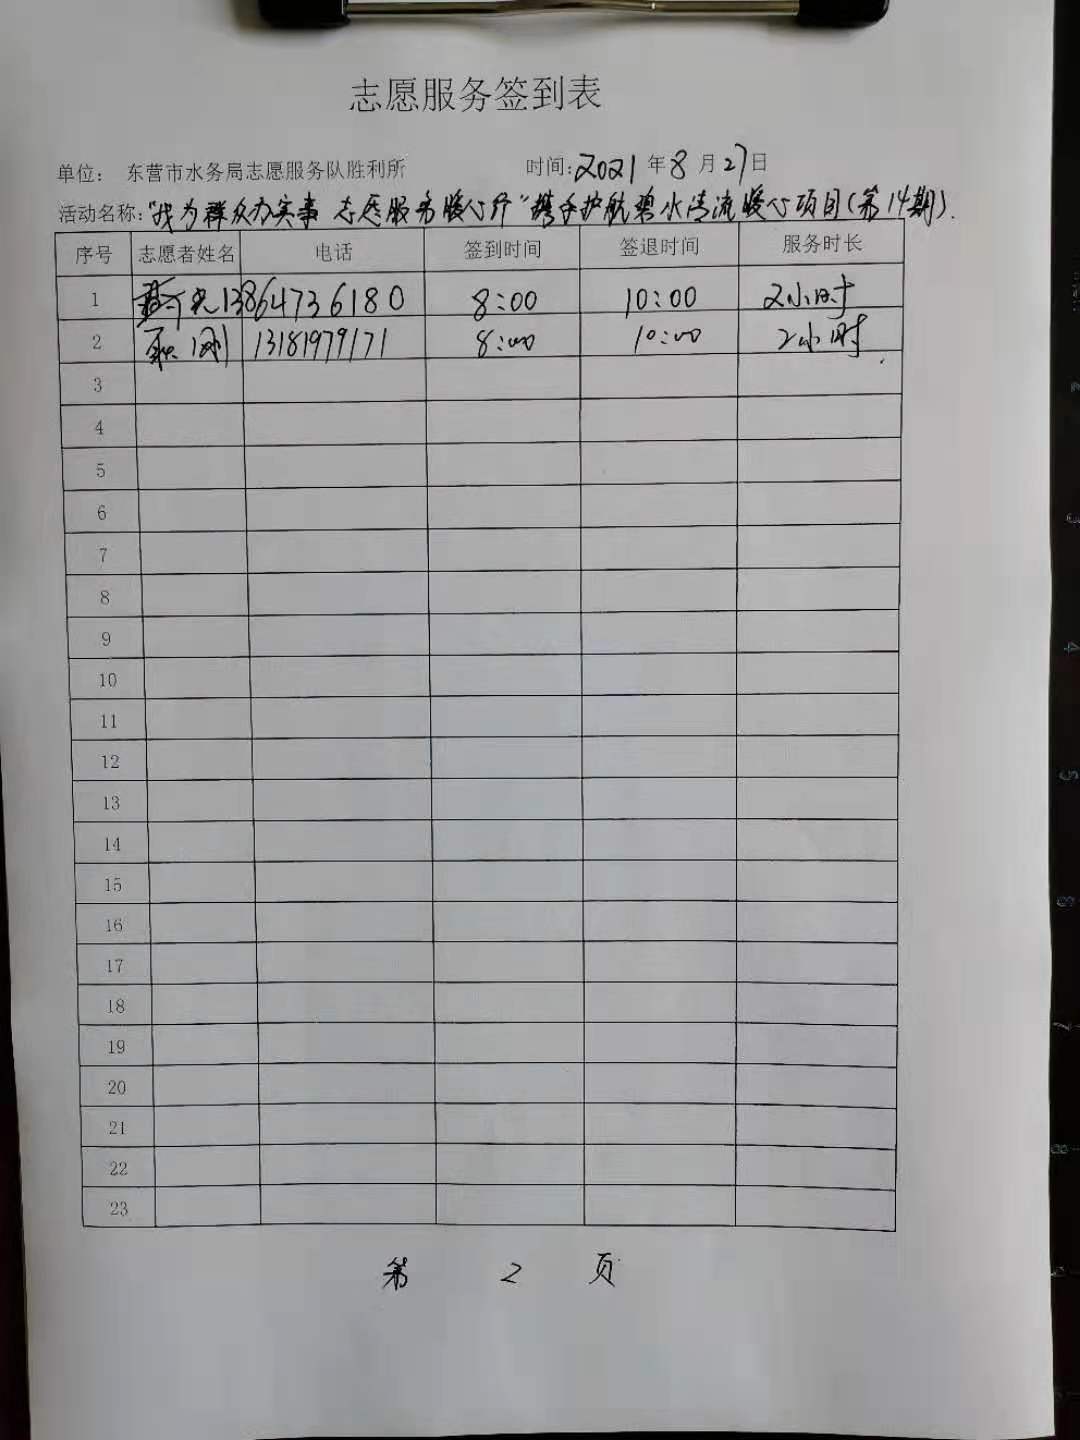 志愿服务签到表
单位： 东营市水务局志愿服务队胜利所 时间:2021年8月27日
活动名称:"我为群众办实事 志愿服务暖心行"携手护航碧水清流暖心项目(第14期).
序号 志愿者姓名 电话 签到时间 签退时间 服务时长
1 13864736180 8:00 10:00 2小时
2 刚 13181979171 8:00 10:00 2小时
3
4
5
6
7
8
9
10
11
12
13
14
15
16
17
18
19
20
21
22
23
第 2 页